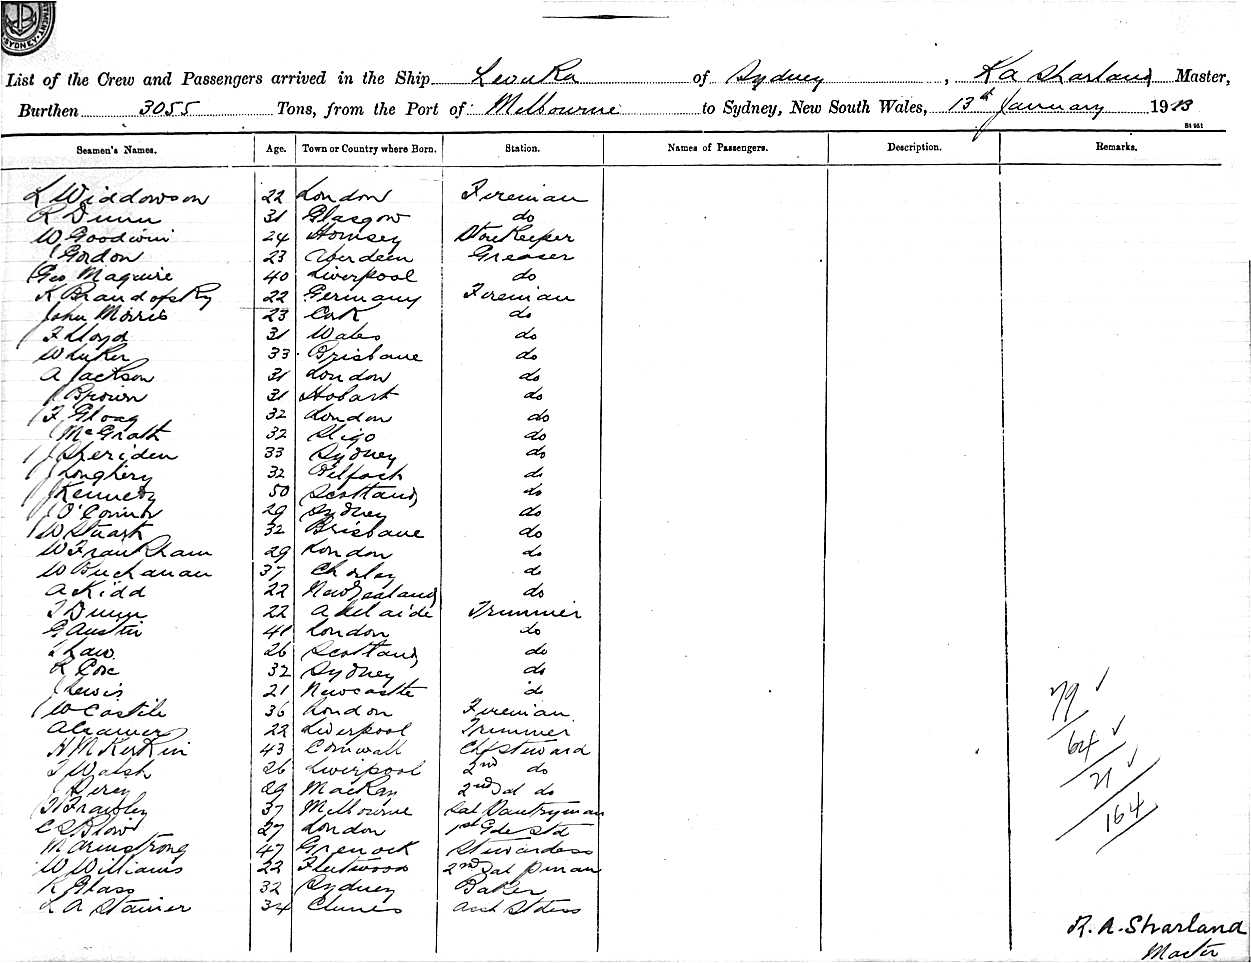 SYDNEY
List of the Crew and Passengers arrived in the Ship Levuka of Sydney, R A Sharland Master,
Burthen 3055 Tons, from the Port of Melbourne to Sydney, New South Wales, 13th January 1913
St 951
Seamen's Names. Age. Town or Country where Born. Station. Names of Passengers. Description. Remarks.
L Widdowson 22 London Fireman
R Dunn 31 Glasgow do
W Goodwin 24 Hornsey Storekeeper
J Gordon 23 Aberdeen Greaser
Geo Maguire 40 Liverpool do
K Brandofsky 22 Germany Fireman
John Morris 23 Cork do
F Lloyd 31 Wales do
W Luker 33 Brisbane do
A Jackson 31 London do
J Brown 31 Hobart do
F Gloag 32 London do
J McGrath 32 Sligo do
J Sheriden 33 Sydney do
J Loughery 32 Belfast do
J Kennedy 50 Scotland do
J O'Connor 29 Sydney do
W Stuart 32 Brisbane do
W Frankham 29 London do
W Buchanan 37 Chorley do
A Kidd 22 New Zealand do
T Dunn 22 Adelaide Trimmer
G Austin 41 London do
Shaw 26 Scotland do
R Cox 32 Sydney do
J Lewis 21 Newcastle do
W Castile 36 London Fireman
A Cramer 22 Liverpool Trimmer
H McKerkin 43 Cornwall Chf Steward
T Walsh 26 Liverpool 2nd do
J Percy 29 Mackay 2nd Sal do
H Frawley 37 Melbourne Sal Pantryman
C S Blow 27 London 1st Gde Std
M Armstrong 47 Grenock Stewardess
W Williams 22 Fleetwood 2nd Sal pman
R Glass 32 Sydney Baker
L A Stainer 34 Clunes Asst Stdess
79
64
21
164
R. A. Sharland
Master